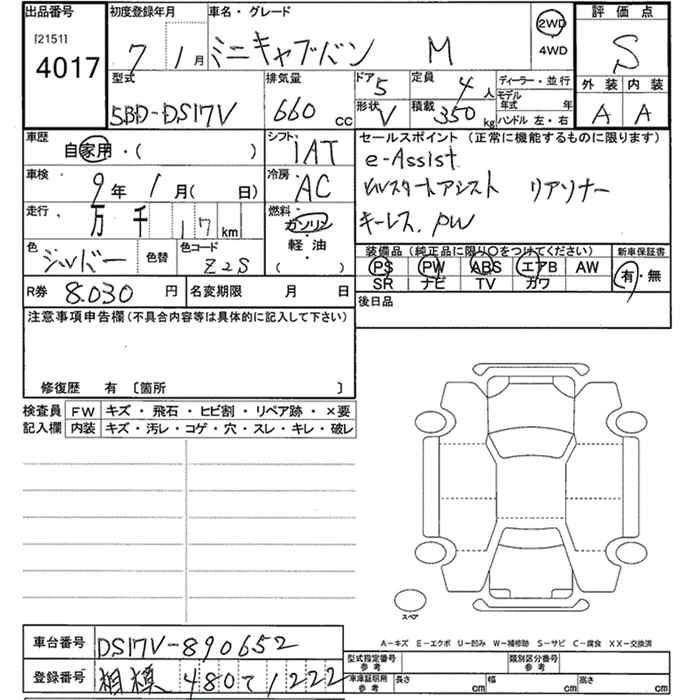 出品番号
[2151]
4017
初度登録年月
7 1月
車名・グレード
ミニキャブバン M
2WD
4WD
評価点
S
外装 内装
A A
型式
5BD-DS17V
排気量
660 cc
ドア
5
形状
V
定員
4人
積載
350kg
ディーラー・並行
モデル年式 年
ハンドル 左・右
車歴
自家用・( )
シフト
IAT
車検
9年 1月( 日)
冷房
AC
走行
万 千 17km
燃料
ガソリン
軽・油
( )
色
シルバー
色替
色コード
Z2S
R券 8.030 円
名変期限 月 日
セールスポイント (正常に機能するものに限ります)
e-Assist
ヒルスタートアシスト リアソナー
キーレス. PW
装備品(純正品に限り〇をつけてください)
PS PW ABS エアB AW
SR ナビ TV カワ
新車保証書
有・無
後日品
注意事項申告欄(不具合内容等は具体的に記入して下さい)
修復歴 有 〔箇所 〕
検査員記入欄
FW キズ・飛石・ヒビ割・リペア跡・×要
内装 キズ・汚レ・コゲ・穴・スレ・キレ・破レ
スペア
A-キズ E-エクボ U-凹み W-補修跡 S-サビ C-腐食 XX-交換済
車台番号 DS17V-890652
登録番号 相模 480 て 1222
型式指定番号参考
類別区分番号参考
車庫証明用参考 長さ cm 幅 cm 高さ cm